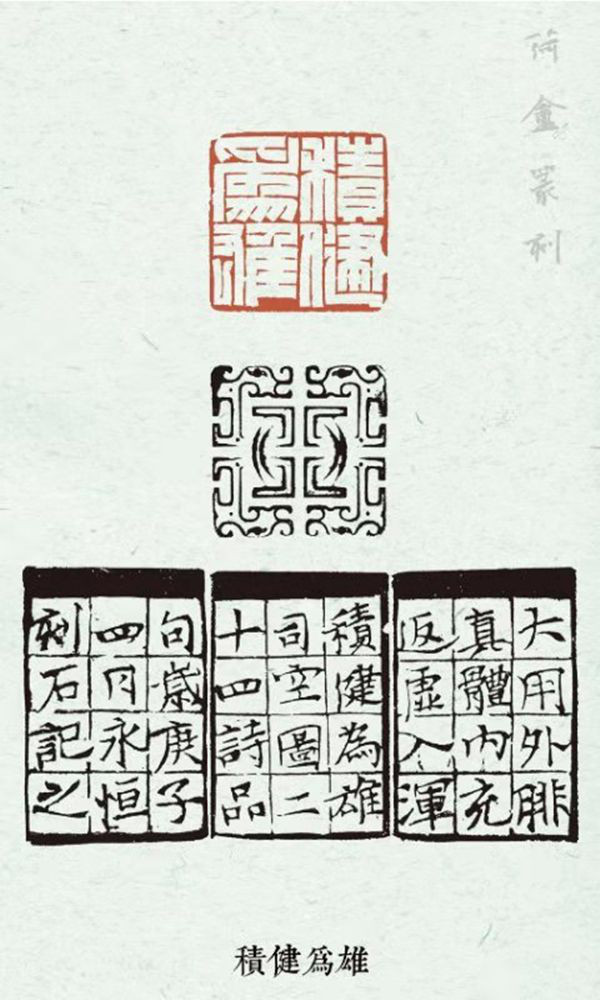 篆刻
積健
爲雄
大用外腓
真體内充
返虛入渾
積健為雄
司空圖二
十四詩品
句歲庚子
四月永恒
刻石記之
積健爲雄